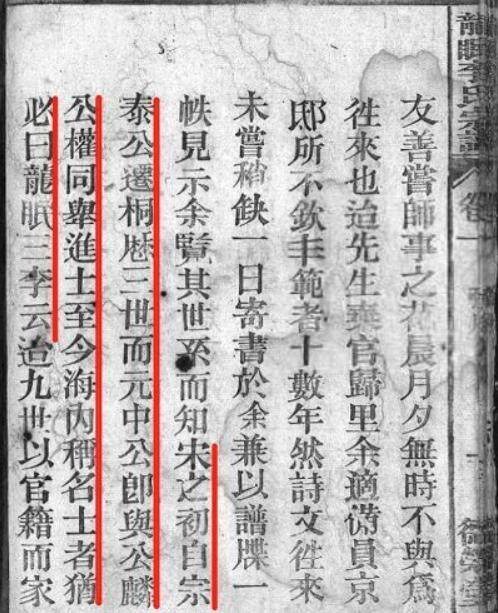 龍眠李氏宗譜 卷一
友善嘗師事之花晨月夕無時不與爲
徃來也迨先生棄官歸里余適備員京
邸所不欽丰範者十數年然詩文徃來
未嘗稍缺一日寄書於余兼以譜牒一
帙見示余覽其世系而知宋之初自宗
泰公遷桐歷三世而元中公卽與公麟
公權同舉進士至今海內稱名士者猶
必曰龍眠三李云迨九世以官籍而家